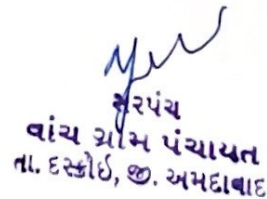 સરપંચ
વાંચ ગ્રામ પંચાયત
તા. દસ્ક્રોઇ, જી. અમદાવાદ